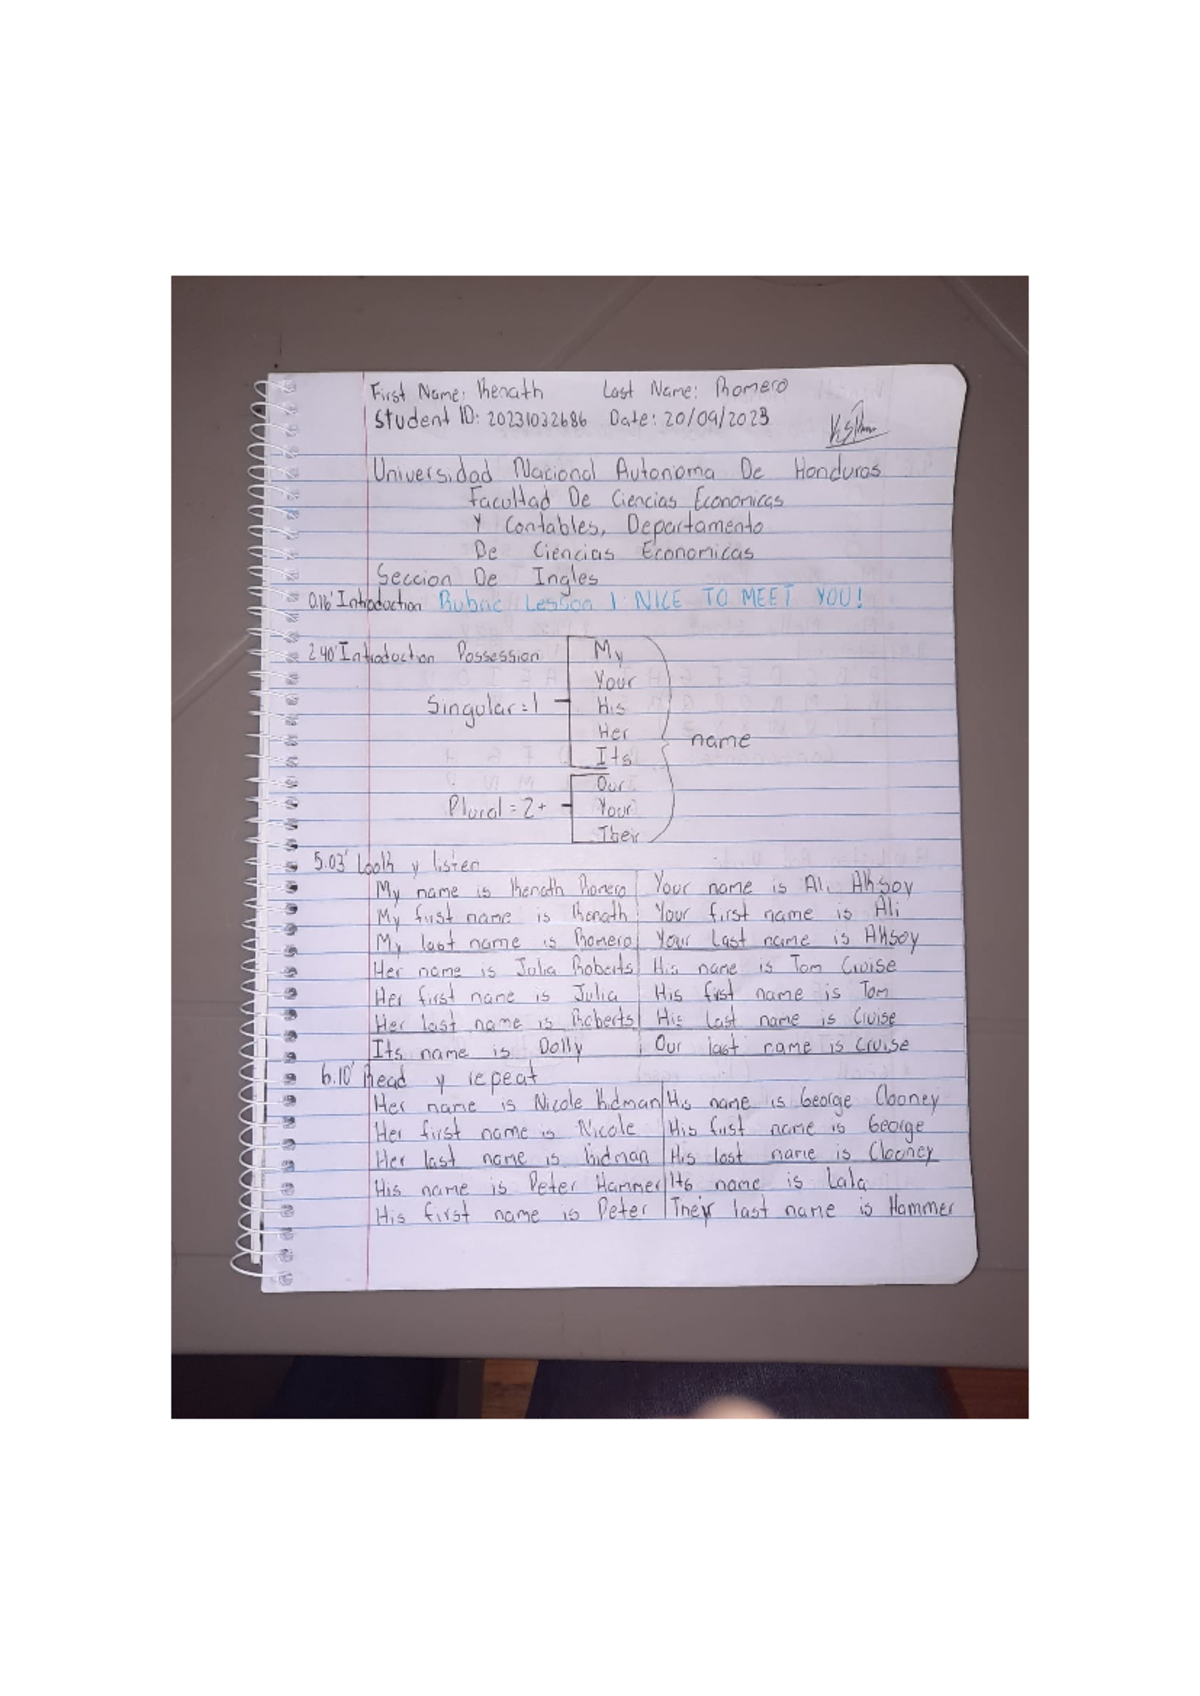 First Name: Kenath Last Name: Romero
Student ID: 20231032686 Date: 20/09/2023
Universidad Nacional Autonoma De Honduras
Facultad De Ciencias Economicas
Y Contables, Departamento
De Ciencias Economicas
Seccion De Ingles
0.16' Introduction Lesson 1 NICE TO MEET YOU!
2.40' Introduction Possession
My
Your
Singular = 1 His
Her
name
Its
Our
Plural = 2+ Your
Their
5.03' Look y listen
My name is Kenath Romero Your name is Ali Aksoy
My first name is Kenath Your first name is Ali
My last name is Romero Your Last name is Aksoy
Her name is Julia Roberts His name is Tom Cruise
Her first name is Julia His first name is Tom
Her last name is Roberts His Last name is Cruise
Its name is Dolly Our last name is Cruise
6.10' Read y repeat
Her name is Nicole Kidman His name is George Clooney
Her first name is Nicole His first name is George
Her last name is Kidman His last name is Clooney
His name is Peter Hammer Its name is Lala
His first name is Peter Their last name is Hammer